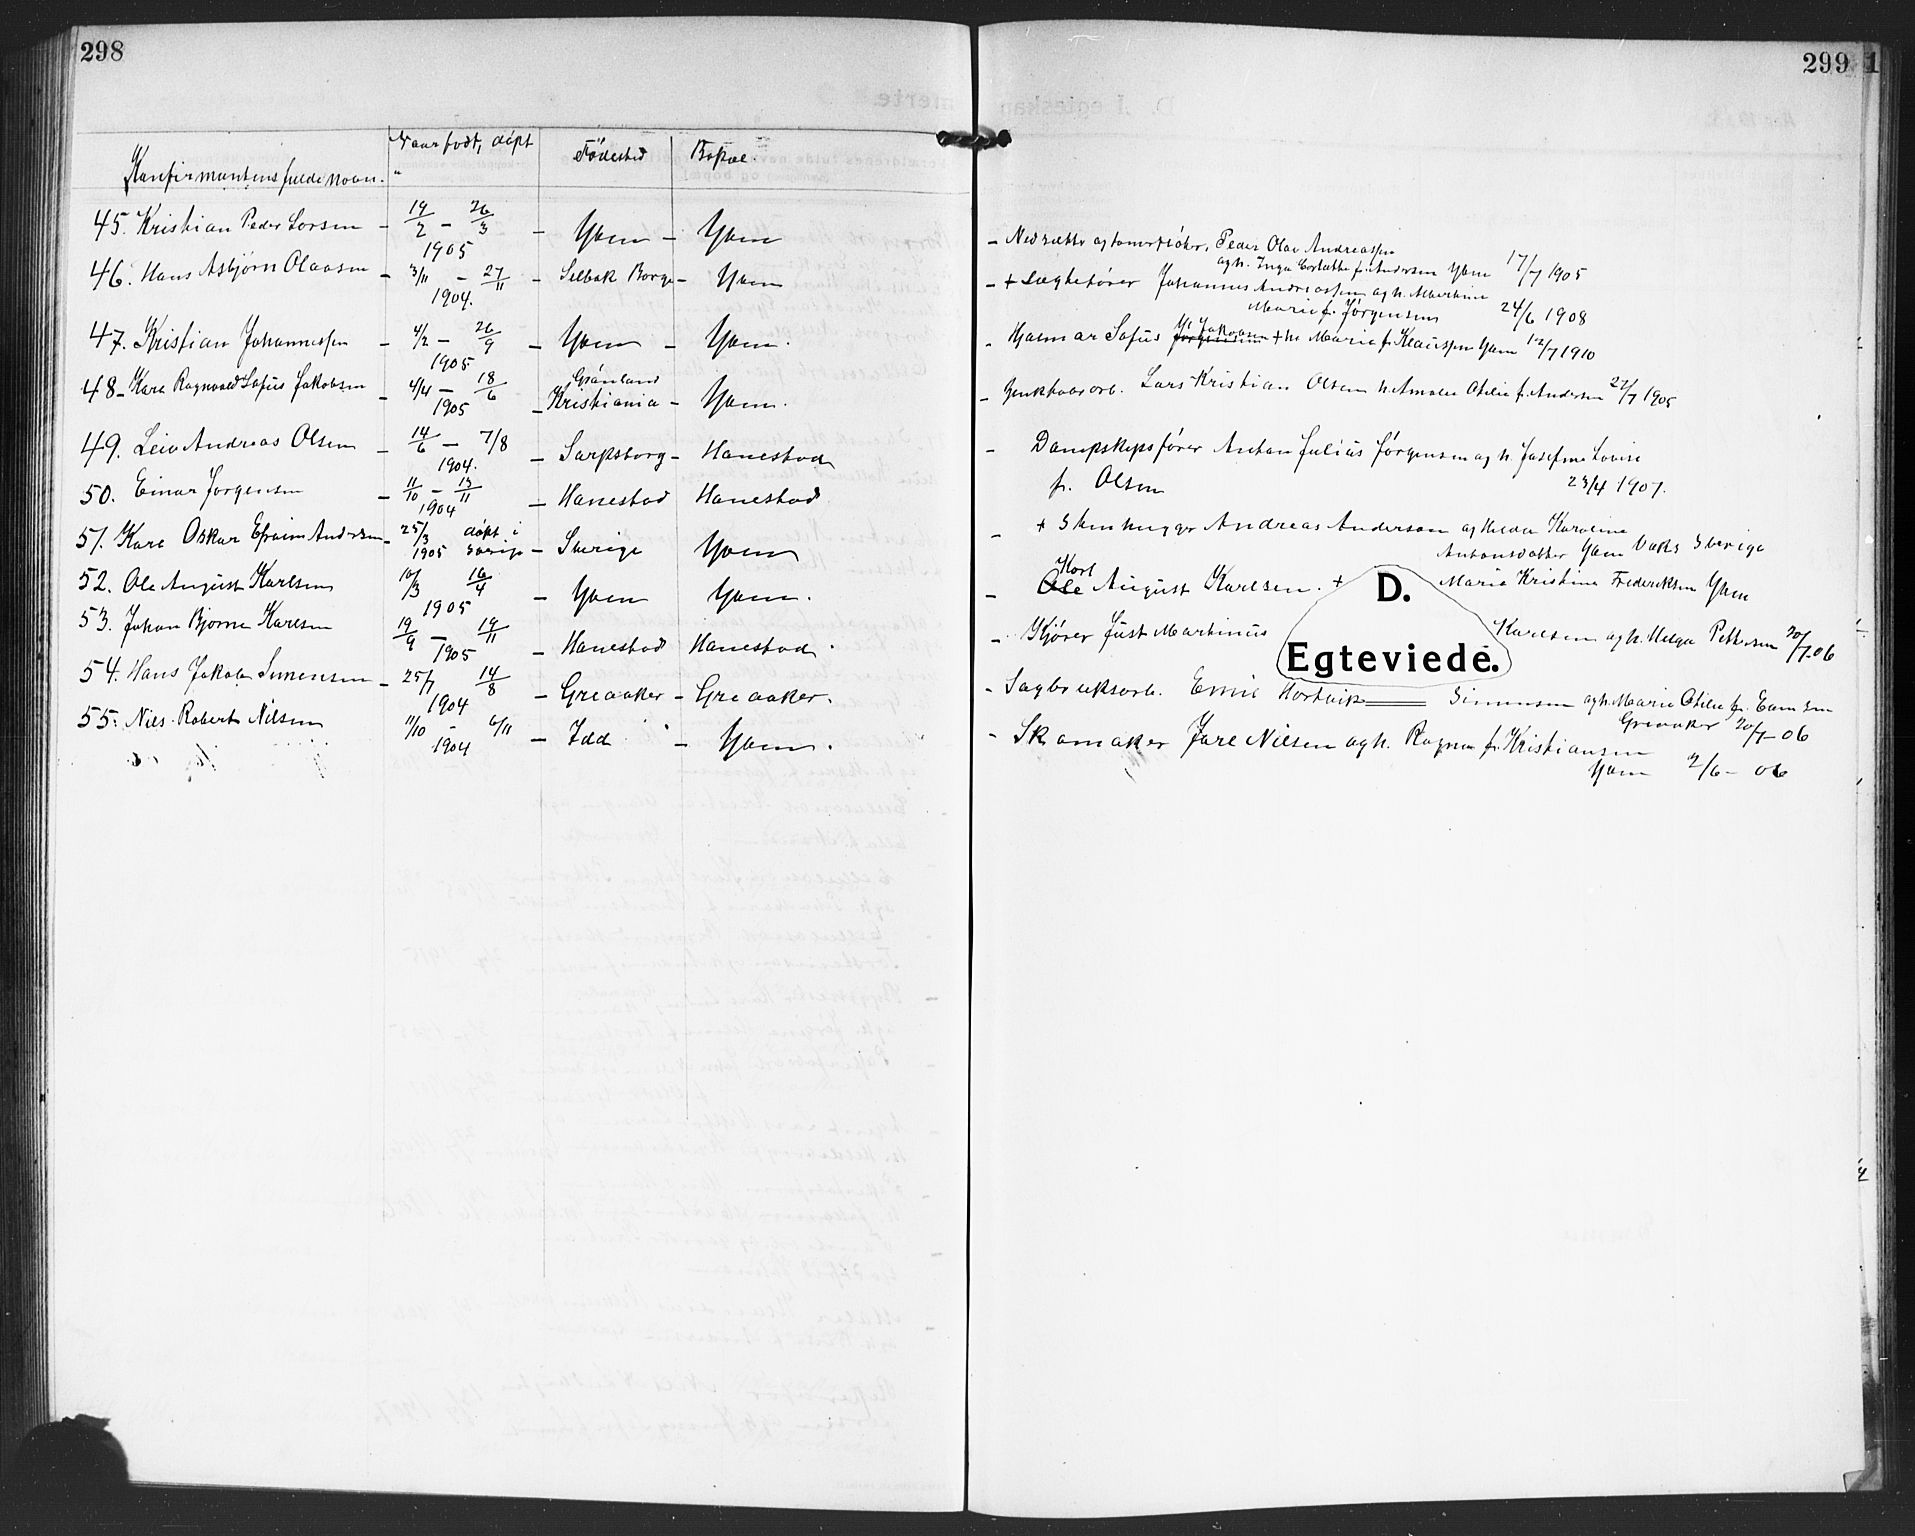 298
Konfirmantens fulde navn.
Naar født, døpt
Fødested
Bopæl.
45. Kristian Peder Lorsen - 19/2 - 26/3 1905 - Yven - Yven
46. Hans Asbjørn Olavsen - 3/11 - 27/11 1904. - Selbak Borge - Yven
47. Kristian Johannessen - 4/2 - 26/9 1905 - Yven - Yven.
48 - Karl Ragnvald Sofus Jakobsen - 4/4 - 18/6 1905 - Grønland Kristiania - Yven.
49. Leiv Andreas Olsen - 14/6 - 7/8 1904. - Sarpsborg - Hanestad
50. Einar Jørgensen - 11/10 - 13/11 1904 - Hanestad Hanestad
51. Karl Oskar Efraim Andersen - 25/3 1905 døpt i Sverige - Sverige Yven
52. Ole August Karlsen 16/3 16/4 1905 - Yven Yven.
53. Johan Bjarne Karlsen 19/9 - 19/11 1905 - Hanestad Hanestad.
54. Hans Jakob Simensen - 25/7 14/8 1904 - Greaaker - Greaaker.
55. Nils Robert Nilsen 11/10 - 6/11 1904 - Idd - Yven.
299
1
- Nedsætts og Peder Olav Andreassen
og h. Inga f. Andersen Yven 17/7 1905
- + Lægtefører Johannes Andreassen og h. Martine
Marie f. Jørgensen 24/6 1908
- Hjalmar Sofus Jørgensen Jakobsen + h. Marie f. Klaussen Yven 12/7 1910
- Lars Kristian Olsen h. Amalie Otilie f. Andersen 27/7 1905
- Dampskipsfører Anton Julius Jørgensen og h. Josefine Lovise
f. Olsen 23/4 1907.
- + Stenhugger Andreas Anderson og Hilda Karoline
Antonsdatter Yven Sverige
- Ole Karl August Karlsen. + Maria Kristina Frederiksen Yven
D.
Egteviede.
- Kjører Just Martinius Karlsen og h. Helga Pettersen 20/7 06
- Sagbruksarb. Emil Hartvik Simensen og h. Marie Otilie f. Evensen
Greaaker 20/7 - 06
- Skomaker Jarl Nilsen og h. Ragna f. Kristiansen
Yven 2/6 - 06